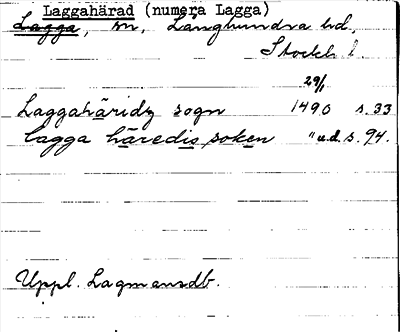 Laggahärad (numera Lagga)
Lagga, sn, Långhundra hd,
Stockh. l.
29/1
Laggahäridz sogn 1490 s. 33
lagga häredis soken "u.d. s. 94.
Uppl. Lagmansdb.